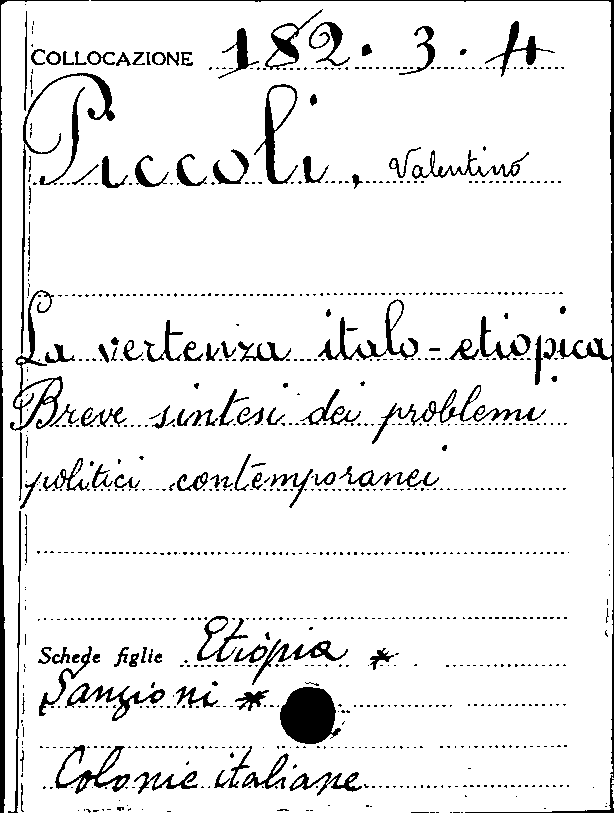 COLLOCAZIONE 182.3.4
Piccoli, Valentino
La vertenza italo-etiopica
Breve sintesi dei problemi
politici contemporanei
Schede figlie Etiopia *
Sanzioni *
Colonie italiane